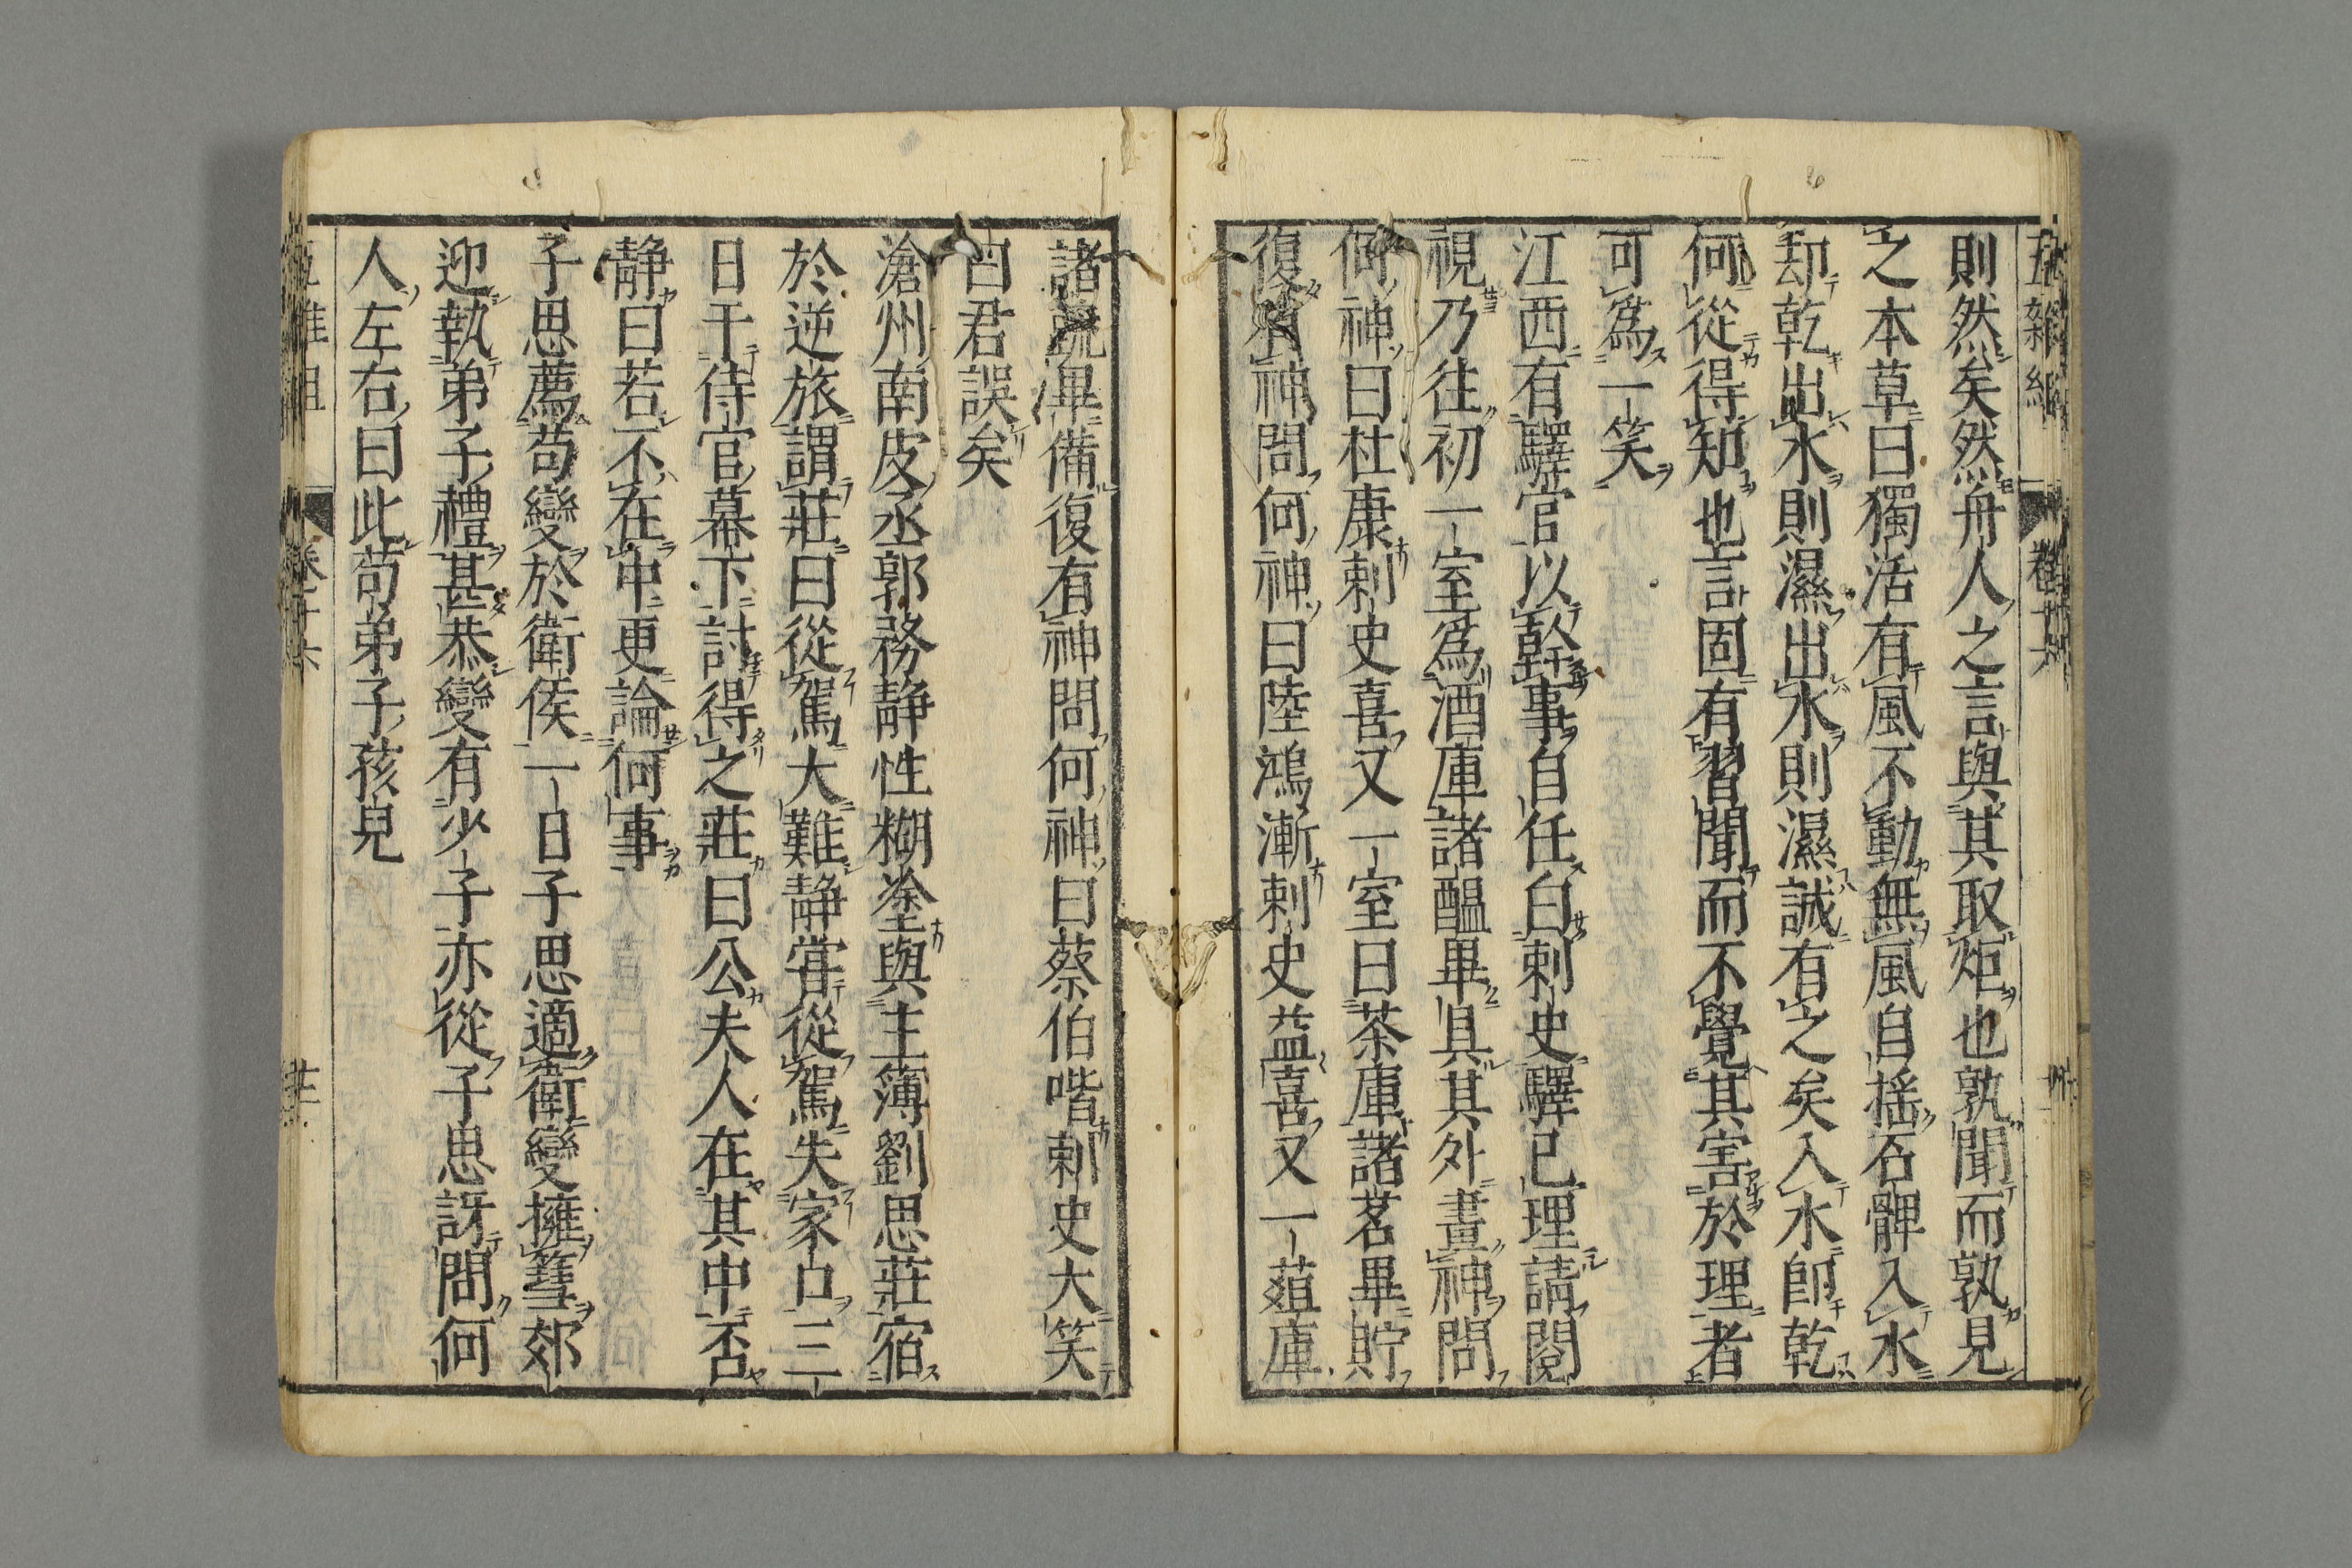 五雜組 卷十六
則然矣然舟人之言與其取炬也孰聞而孰見
之本草曰獨活有風不動無風自搖石髀入水
却乾出水則濕出水則濕誠有之矣入水卽乾
何從得知也言固有習聞而不覺其害於理者
可爲一笑
江西有驛官以幹事自任白剌史驛已理請閱
視乃往初一室爲酒庫諸醞畢具其外畫神問
何神曰杜康剌史喜又一室曰茶庫諸茗畢貯
復有神問何神曰陸鴻漸剌史益喜又一葅庫
諸蔬畢備復有神問何神曰蔡伯喈剌史大笑
曰君誤矣
滄州南皮丞郭務静性糊塗與主簿劉思莊宿
於逆旅謂莊曰從駕大難静嘗從駕失家口三
日于侍官幕下討得之莊曰公夫人在其中否
静曰若不在中更論何事
子思薦苟變於衛侯一日子思適衛變擁篲郊
迎執弟子禮甚恭變有少子亦從子思訝問何
人左右曰此苟弟子孩兒
五雜組 卷十六